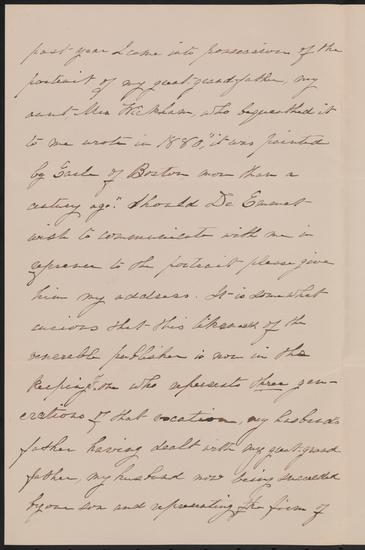 past year I came into possession of the
portrait of my great-grandfather, my
aunt Mrs Wickham, who bequeathed it
to me wrote in 1880, "it was painted
by Earle of Boston more than a
century ago". Should Dr Emmet
wish to communicate with me in
reference to the portrait please give
him my address. It is somewhat
curious that this likeness of the
venerable publisher is now in the
keeping of one who represents three gen-
erations of that vocation, my husband's
father having dealt with my great-grand
father, my husband now being succeeded
by our son and representing the firm of